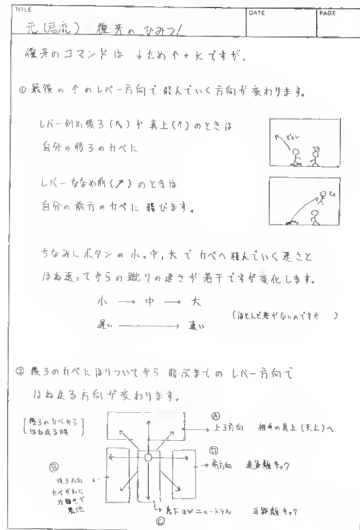 TITLE
DATE
PAGE
元(烏流) 復芳のひみつ!
復芳のコマンドは ↓ため↑+Kですが、
① 最後の↑のレバー方向で飛んでいく方向が変わります。
レバー斜め後ろ(↖)か真上(↑)のときは
自分の後ろのカベに
レバーななめ前(↗)のときは
自分の前方のカベに飛びます。
ちなみにボタンの小、中、大でカベへ飛んでいく速さと
はね返ってからの蹴りの速さが若干ですが変化します。
小 → 中 → 大
(ほとんど差がないのですが)
遅い → 速い
② 後ろのカベにはりついてから 指示までのレバー方向で
はね返る方向が変わります。
後ろのカベから
はね返る時
Ⓐ
上3方向 相手の真上(天上)へ
前方向 遠距離キック
後ろ方向
着地
真下 ニュートラル 近距離キック
Ⓒ